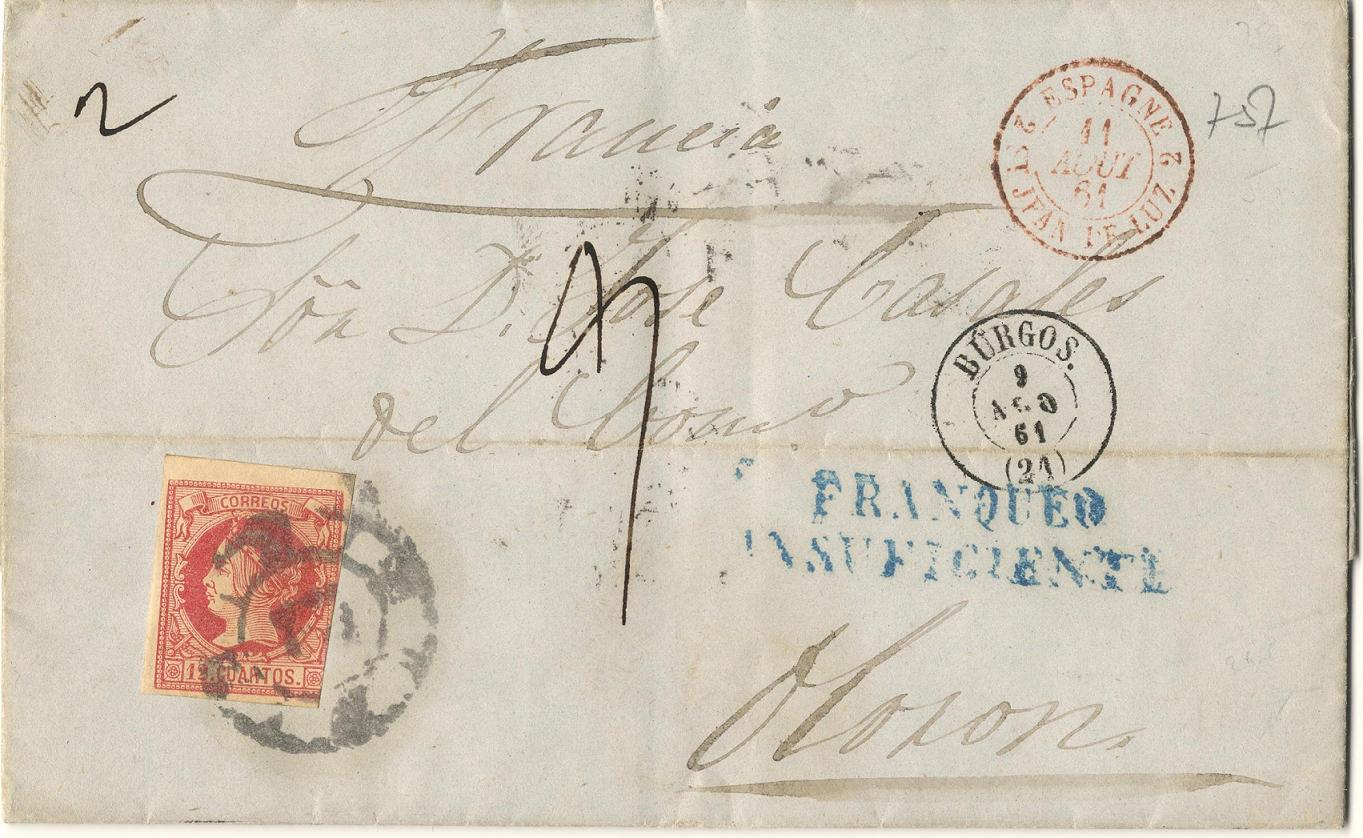 2
Francia
ESPAGNE 2
ST JEAN DE LUZ 2
11
AOUT
61
757
Sōr D. José Casales
del Como
BÚRGOS.
9
AGO
61
(21)
FRANQUEO
INSUFICIENTE
CORREOS
12 CUARTOS.
Oloron.